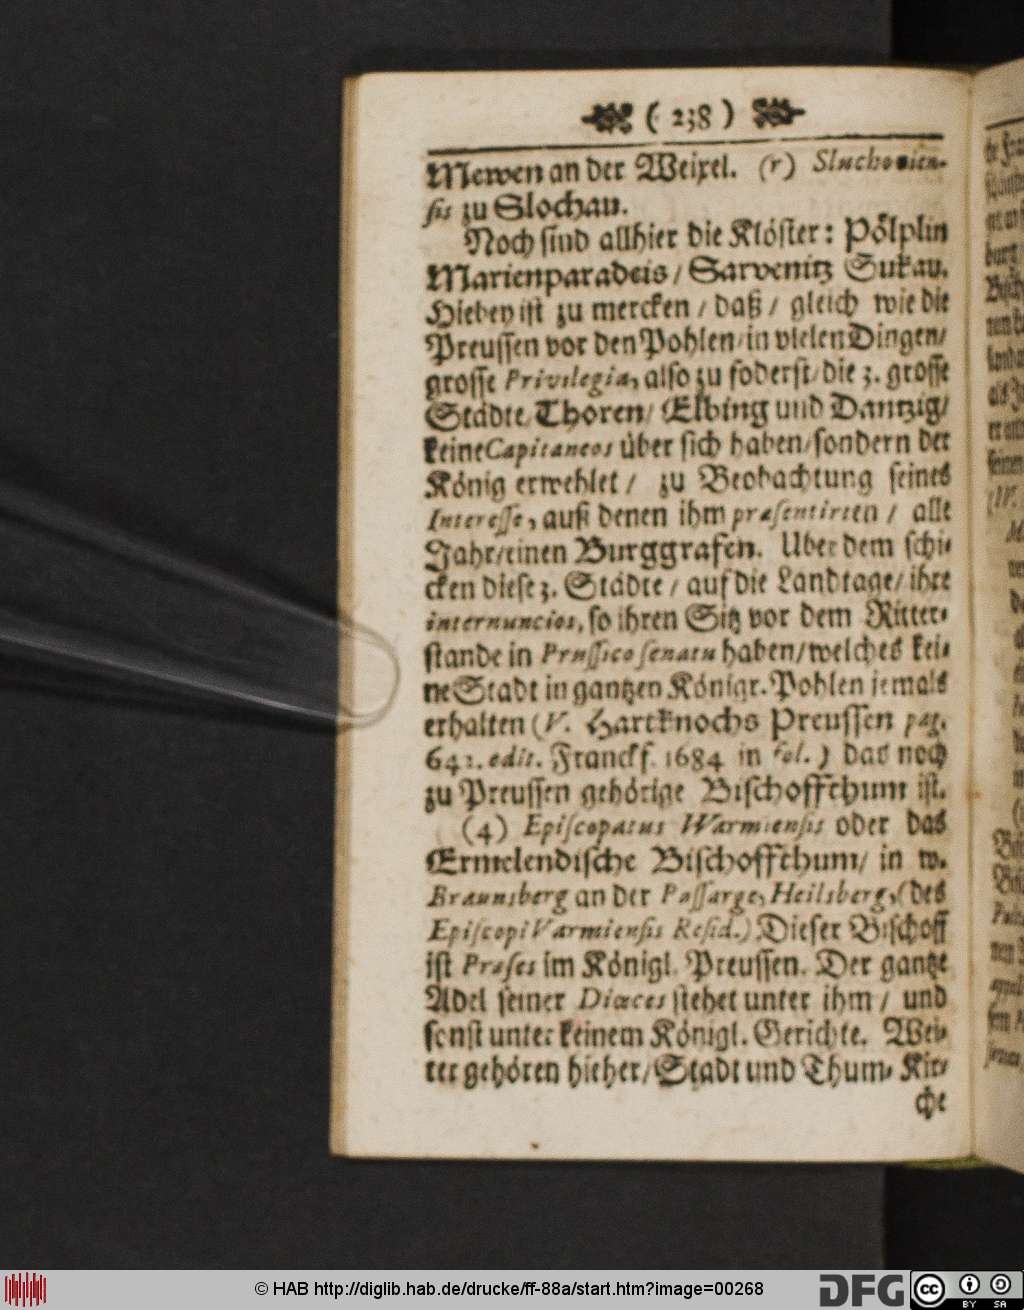 ( 238 )
Mewen an der Weixel. (r) Sluchovien-
sis zu Slochau.
Noch sind allhier die Klöster: Pölplin
Marienparadeis / Sarvenitz Sukau.
Hiebey ist zu mercken / daß / gleich wie die
Preussen vor den Pohlen / in vielen Dingen /
grosse Privilegia, also zu foderst / die 3. grosse
Städte / Thoren / Elbing und Dantzig /
keine Capitaneos über sich haben / sondern der
König erwehlet / zu Beobachtung seines
Interesse, auß denen ihm præsentirten / alle
Jahr / einen Burggrafen. Uber dem schi-
cken diese 3. Städte / auf die Landtage / ihre
internuncios, so ihren Sitz vor dem Ritter-
stande in Prussico senatu haben / welches kei-
ne Stadt in gantzen Königr. Pohlen jemals
erhalten (V. Hartknochs Preussen pag.
641. edit. Franckf. 1684 in fol. ) das noch
zu Preussen gehörige Bischoffthum ist.
(4) Episcopatus Warmiensis oder das
Ermelendische Bischoffthum / in w.
Braunsberg an der Passarge, Heilsberg, (des
Episcopi Varmiensis Resid.) Dieser Bischoff
ist Præses im Königl. Preussen. Der gantze
Adel seiner Diœces stehet unter ihm / und
sonst unter keinem Königl. Gerichte. Wei-
ter gehören hieher / Stadt und Thum-Kir-
che
© HAB http://diglib.hab.de/drucke/ff-88a/start.htm?image=00268
DFG
cc BY SA